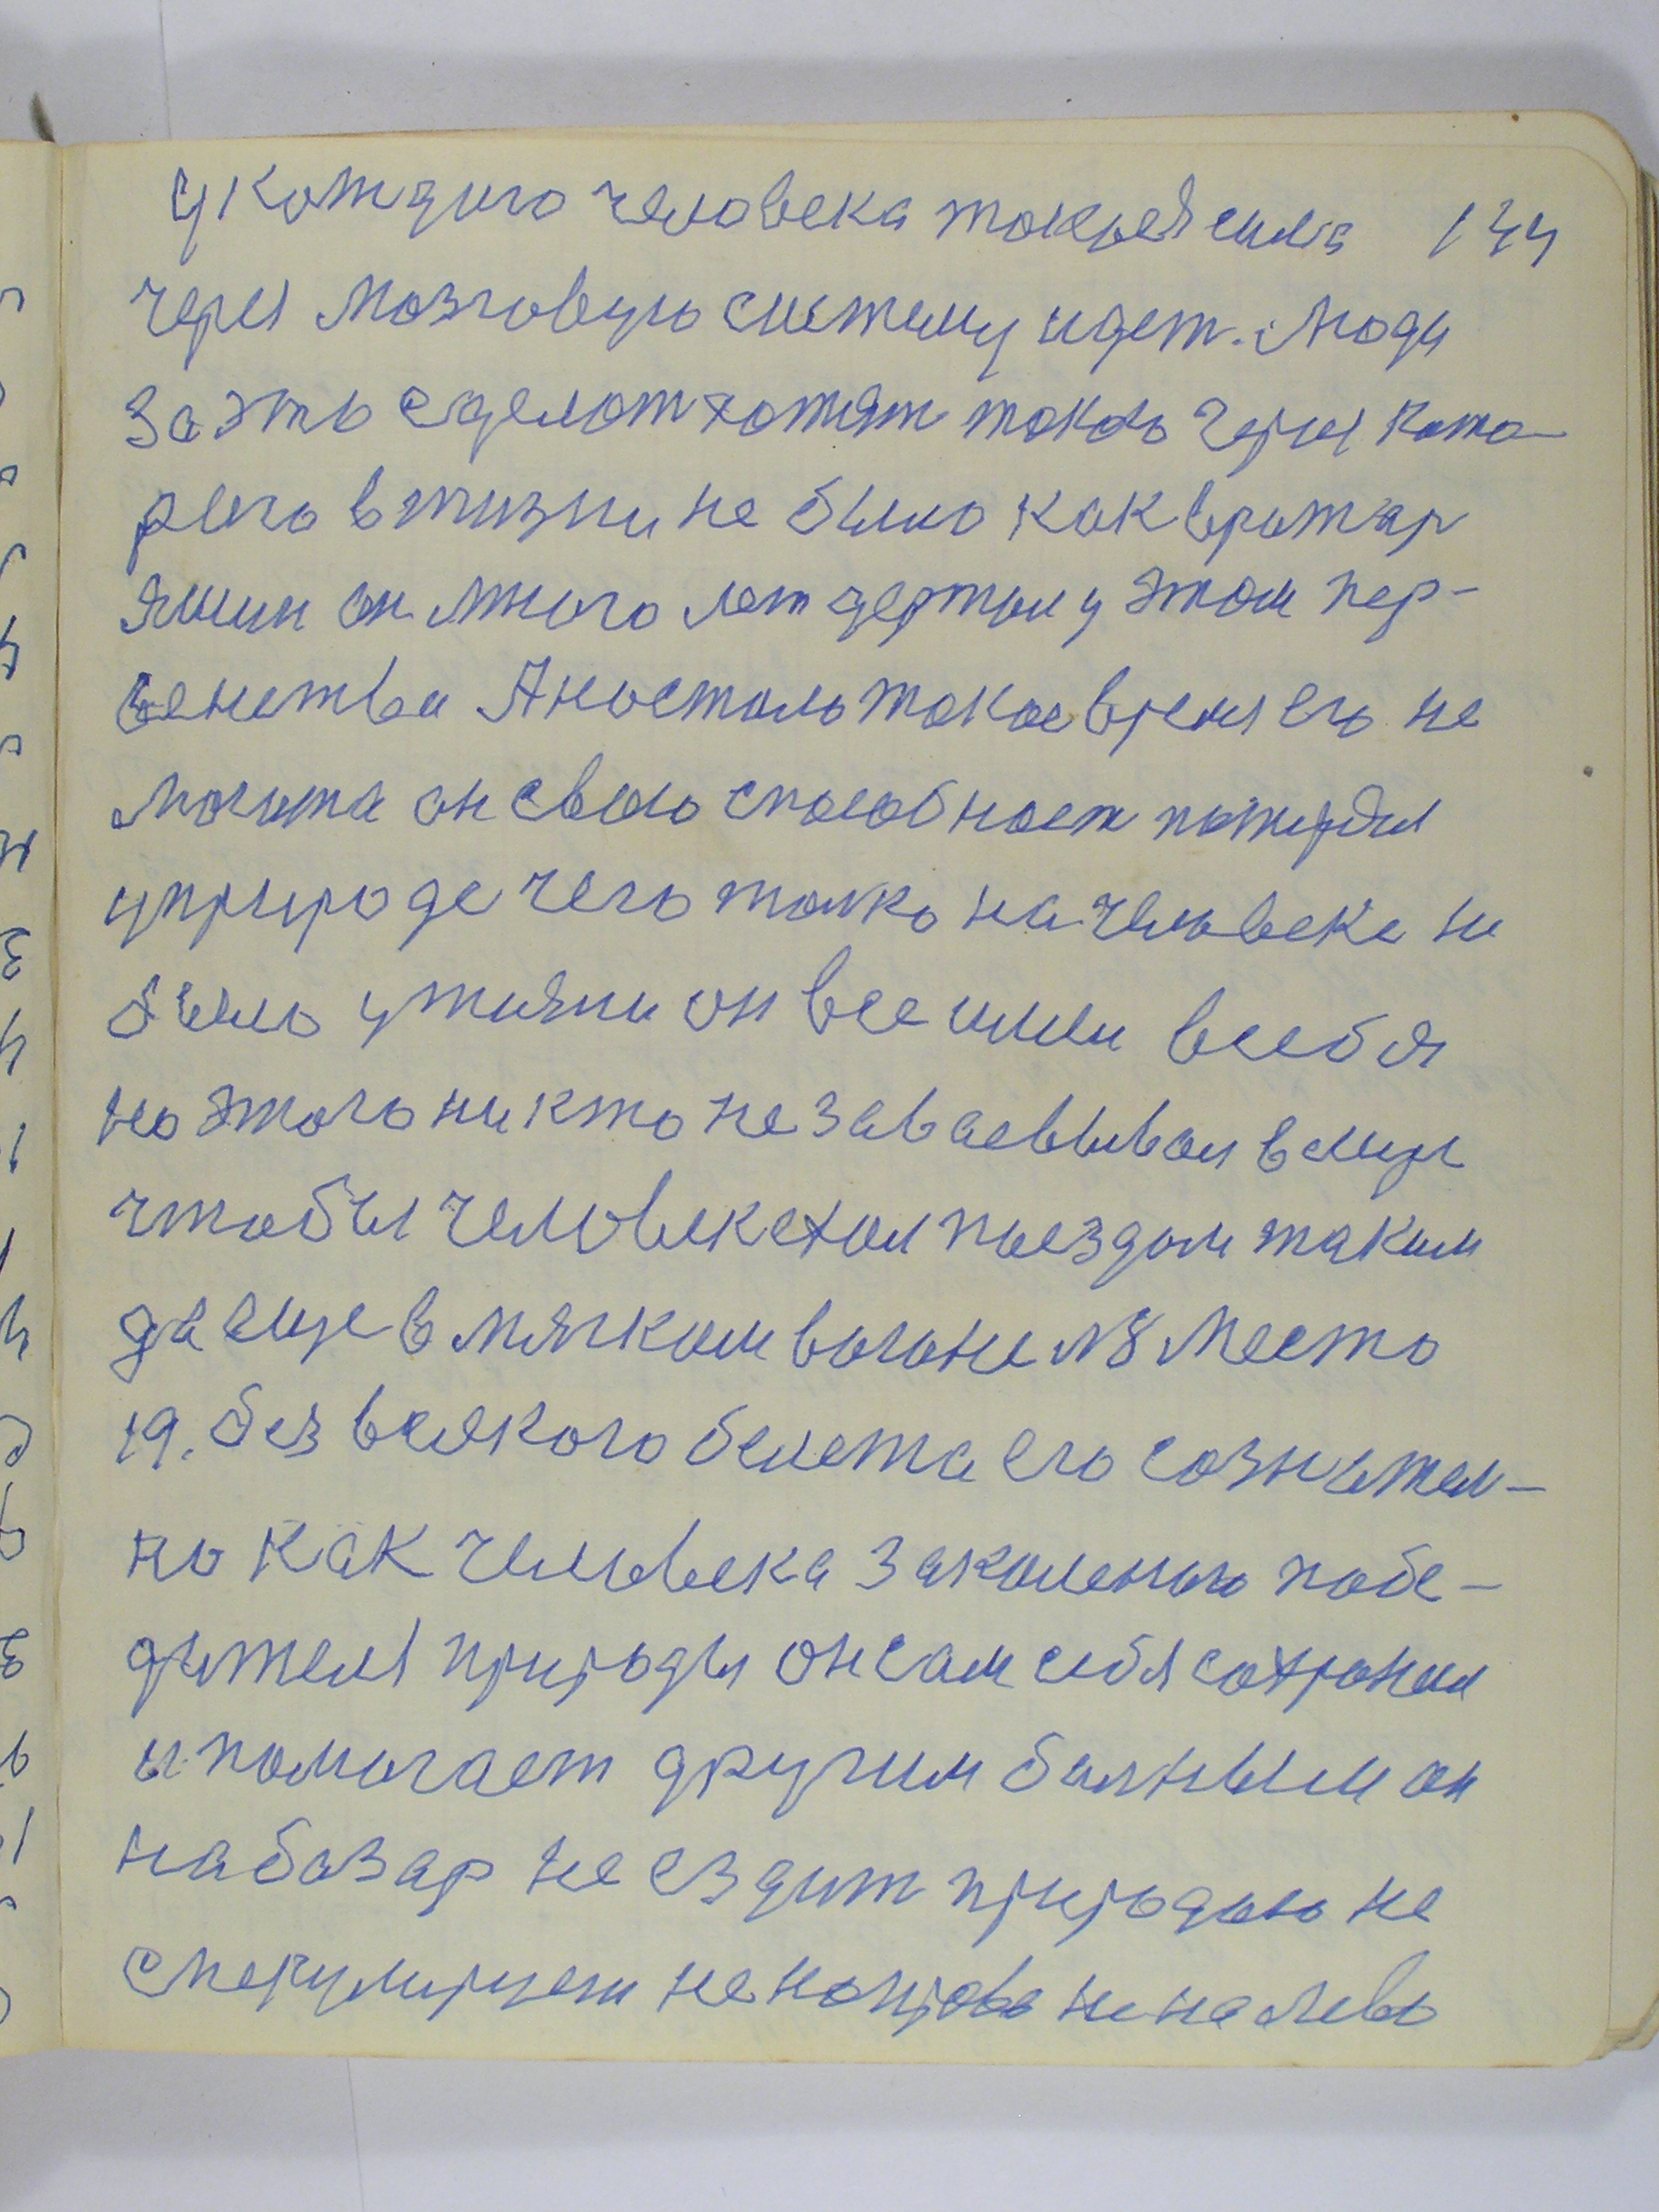 у каждиго человека такыея сила 144
через мозговую систему идет. Люди
за это сделат хотят токо через кото-
рыго в жизни не было как вратар
Яшин он много лет держал у этом пер-
венстви А настало такое время его не
могита он свою способност потерял
у природе чего толко на человеке не
было у жизни он все имел в себя
но этого никто не заваевывал в мире
чтобы человек ехал поездом таким
да еще в мягком вагоне №8 место
19. без всякого билета его сознател-
но как человека закаленого побе-
дителя природы он сам себя сохронил
и помагает другим болным он
на базар не ездит природою не
спекулирует не направо не на лево